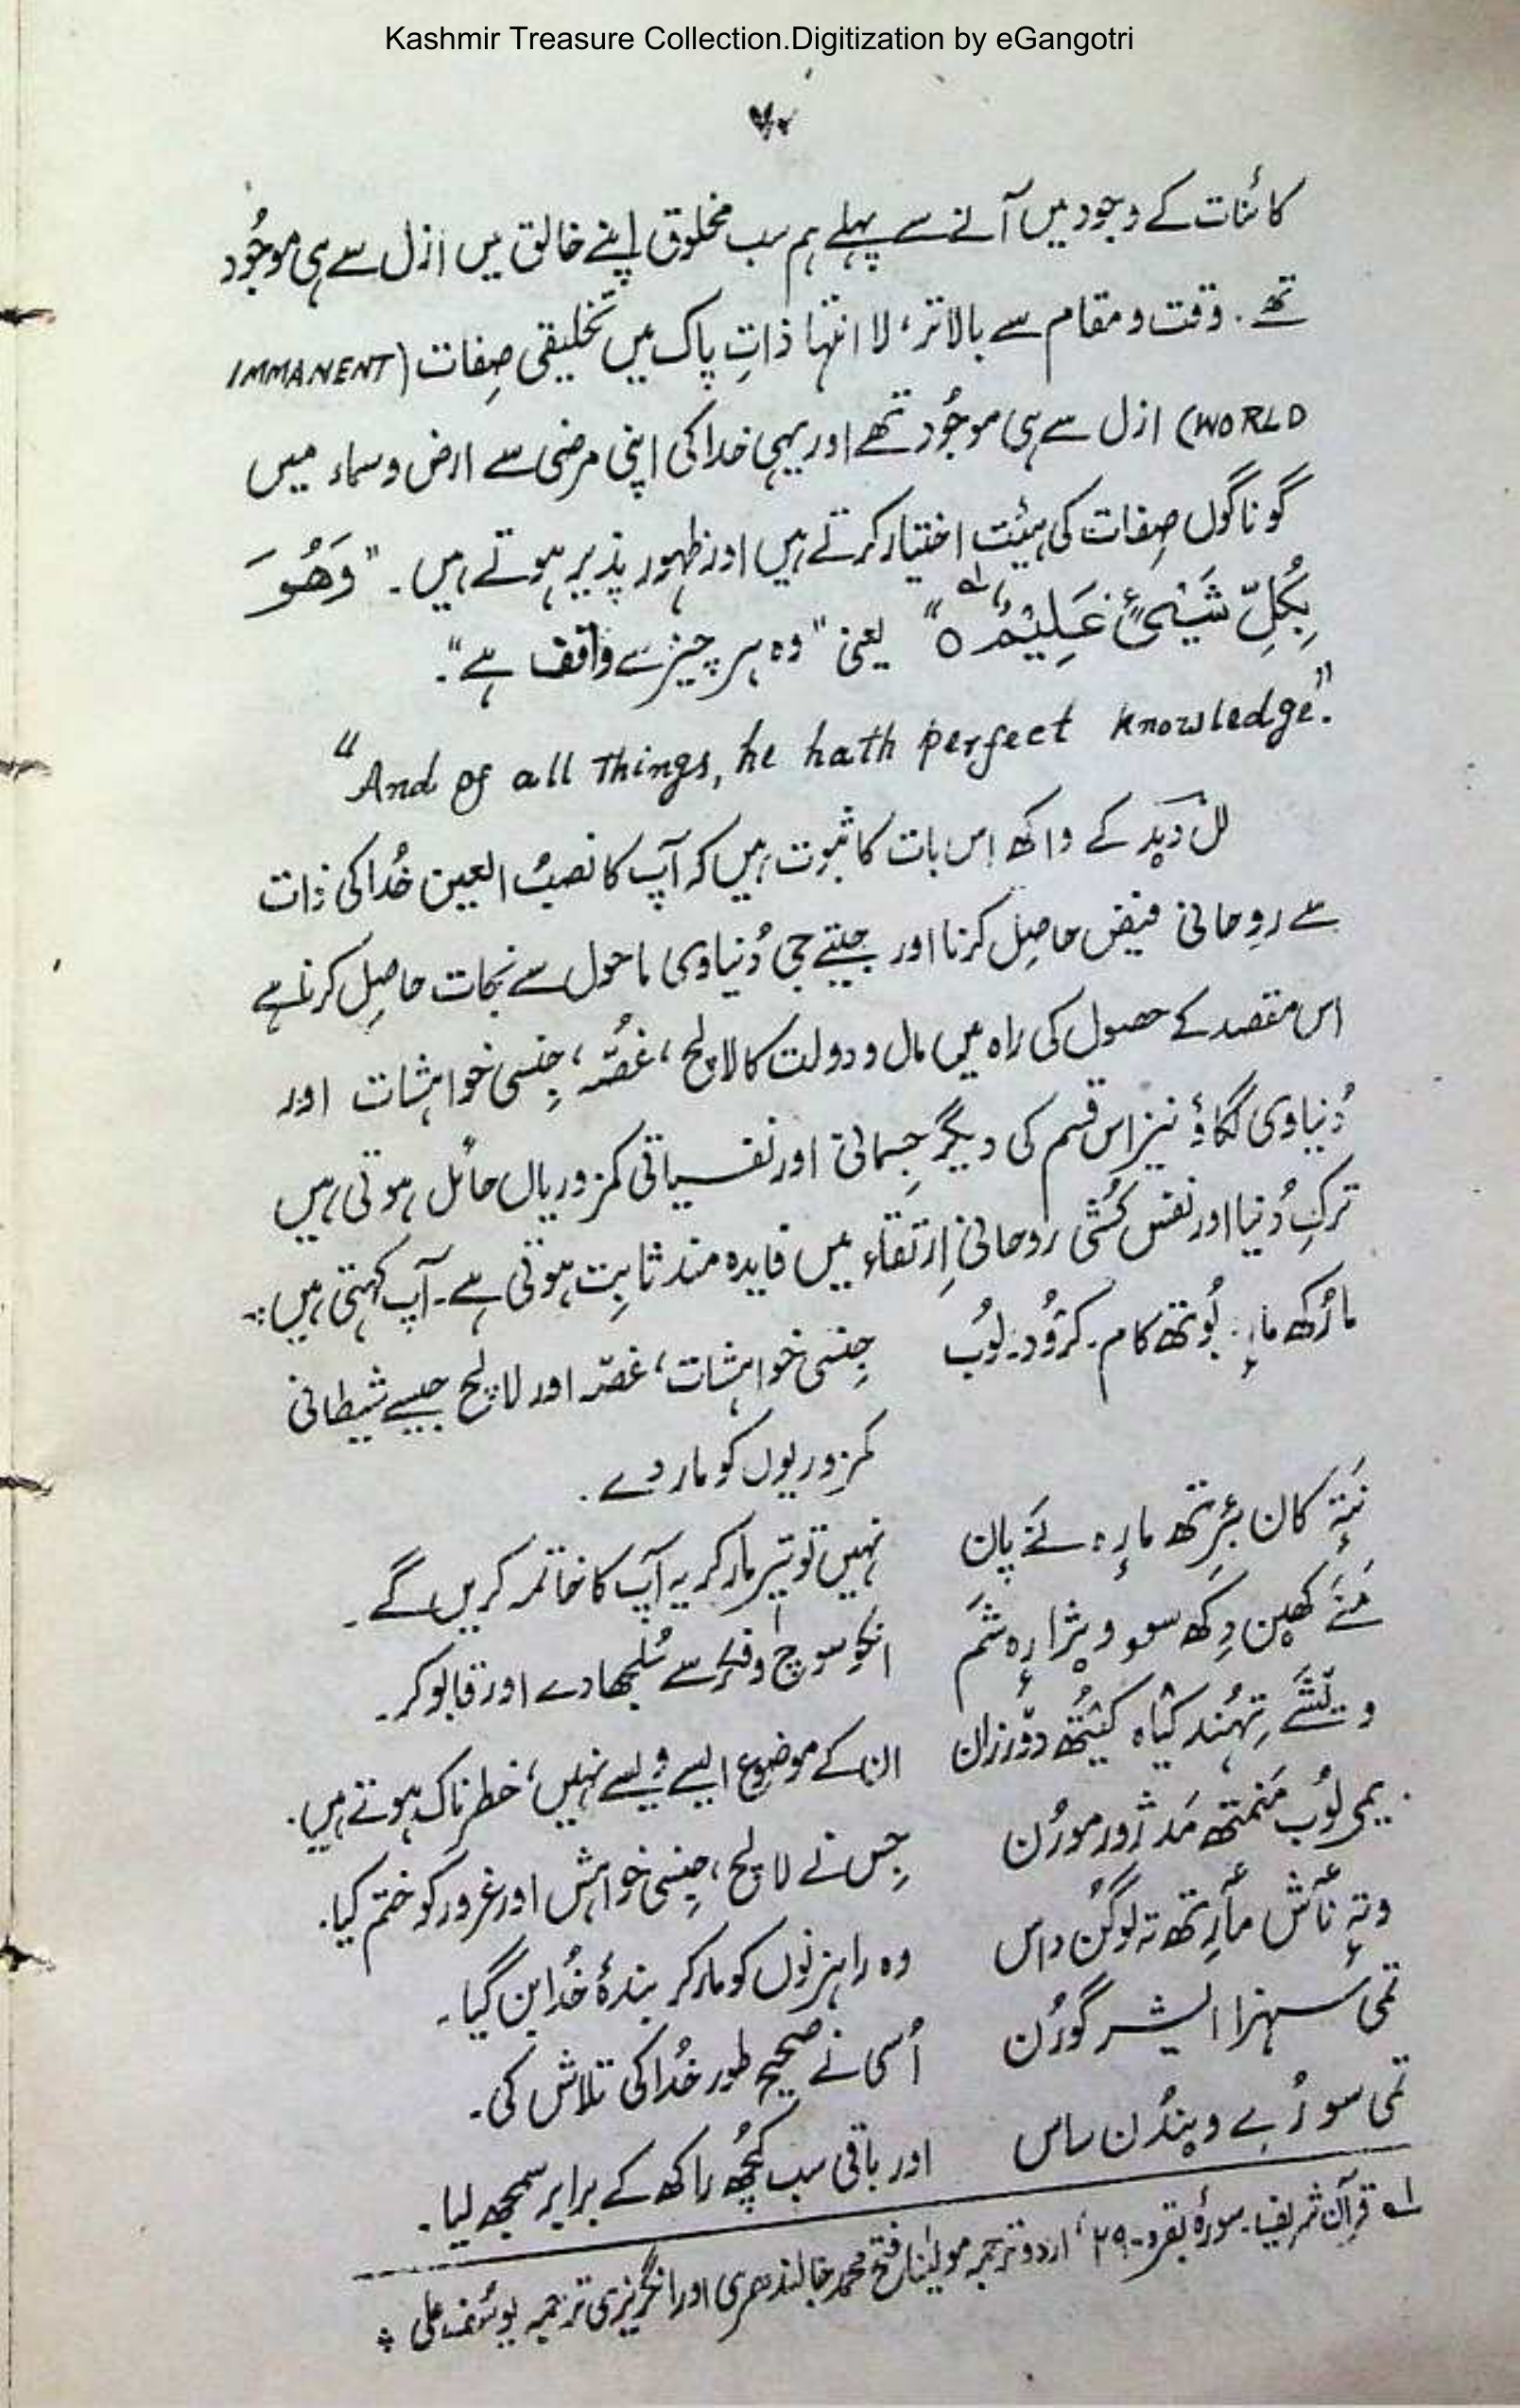 Kashmir Treasure Collection.Digitization by eGangotri
کائنات کے وجود میں آنے سے پہلے ہم سب مخلوق اپنے خالق میں ازل سے ہی موجُود
تھے۔ وقت و مقام سے بالاتر، لا انتہا ذاتِ پاک میں تخلیقی صِفات (IMMANENT
WORLD) ازل سے ہی موجُود تھے اور یہی خدا کی اپنی مرضی سے ارض و سماء میں
گوناگوں صِفات کی ہیئت اختیار کرتے ہیں اور ظہور پذیر ہوتے ہیں۔ "وَھُوَ
بِکُلِّ شَیْیٍٔ عَلِیْمُ ہ" لہ یعنی "وہ ہر چیز سے واقف ہے"۔
"And of all things, he hath perfect knowledge".
لل دید کے واکھ اِس بات کا ثبوت ہیں کہ آپ کا نصبُ العین خُدا کی ذات
سے روحانی فیض حاصِل کرنا اور جیتے جی دُنیاوی ماحول سے نجات حاصِل کرنا ہے
اس مقصد کے حصول کی راہ میں مال و دولت کا لالچ، غصّہ، جِنسی خواہشات اور
دُنیاوی لگاؤ نیز اس قسم کی دیگر جِسمانی اور نفسیاتی کمزوریاں حائل ہوتی ہیں
ترکِ دُنیا اور نفس کُشی روحانی اِرتقاء میں فایدہ مند ثابِت ہوتی ہے۔ آپ کہتی ہیں:۔
مارُکھ مارٕ بُوتھ کام۔ کرُود۔ لوُب جِنسی خواہشات، غصّہ اور لالچ جیسے شیطانی
کمزوریوں کو مار دے۔
نَتہٕ کان بٔرِتھ مارِہ نَے پان نہیں تو تیر مار کر یہ آپ کا خاتمہ کریں گے۔
مَنَے کھین دِکھ سوو ویژارِہ شَم انکو سوچ و فکر سے سُلجھا دے اور قابو کر۔
ویشَے تِہُند کیاہ کیُتھ دوّرزان ان کے موضوع ایسے ویسے نہیں، خطرناک ہوتے ہیں۔
یمی لوُب مَنمتھ مَد ژور مورُن جِس نے لالچ، جِنسی خواہش اور غرور کو ختم کیا۔
وتہٕ نٲش مٲرِتھ تہ لوگُن داس وہ راہزنوں کو مار کر بندۂ خُدا بن گیا۔
تمی سہزا ایشر گورُن اُسی نے صحیح طور خُدا کی تلاش کی۔
تمی سورُے ویندُن ساس اور باقی سب کُچھ راکھ کے برابر سمجھ لیا۔
لہ قرآن شریف۔ سورۂ بقرہ۔ ۲۹، اردو ترجمہ مولیٰنا فتح محمد جالندھری اور انگریزی ترجمہ یوسُف علی